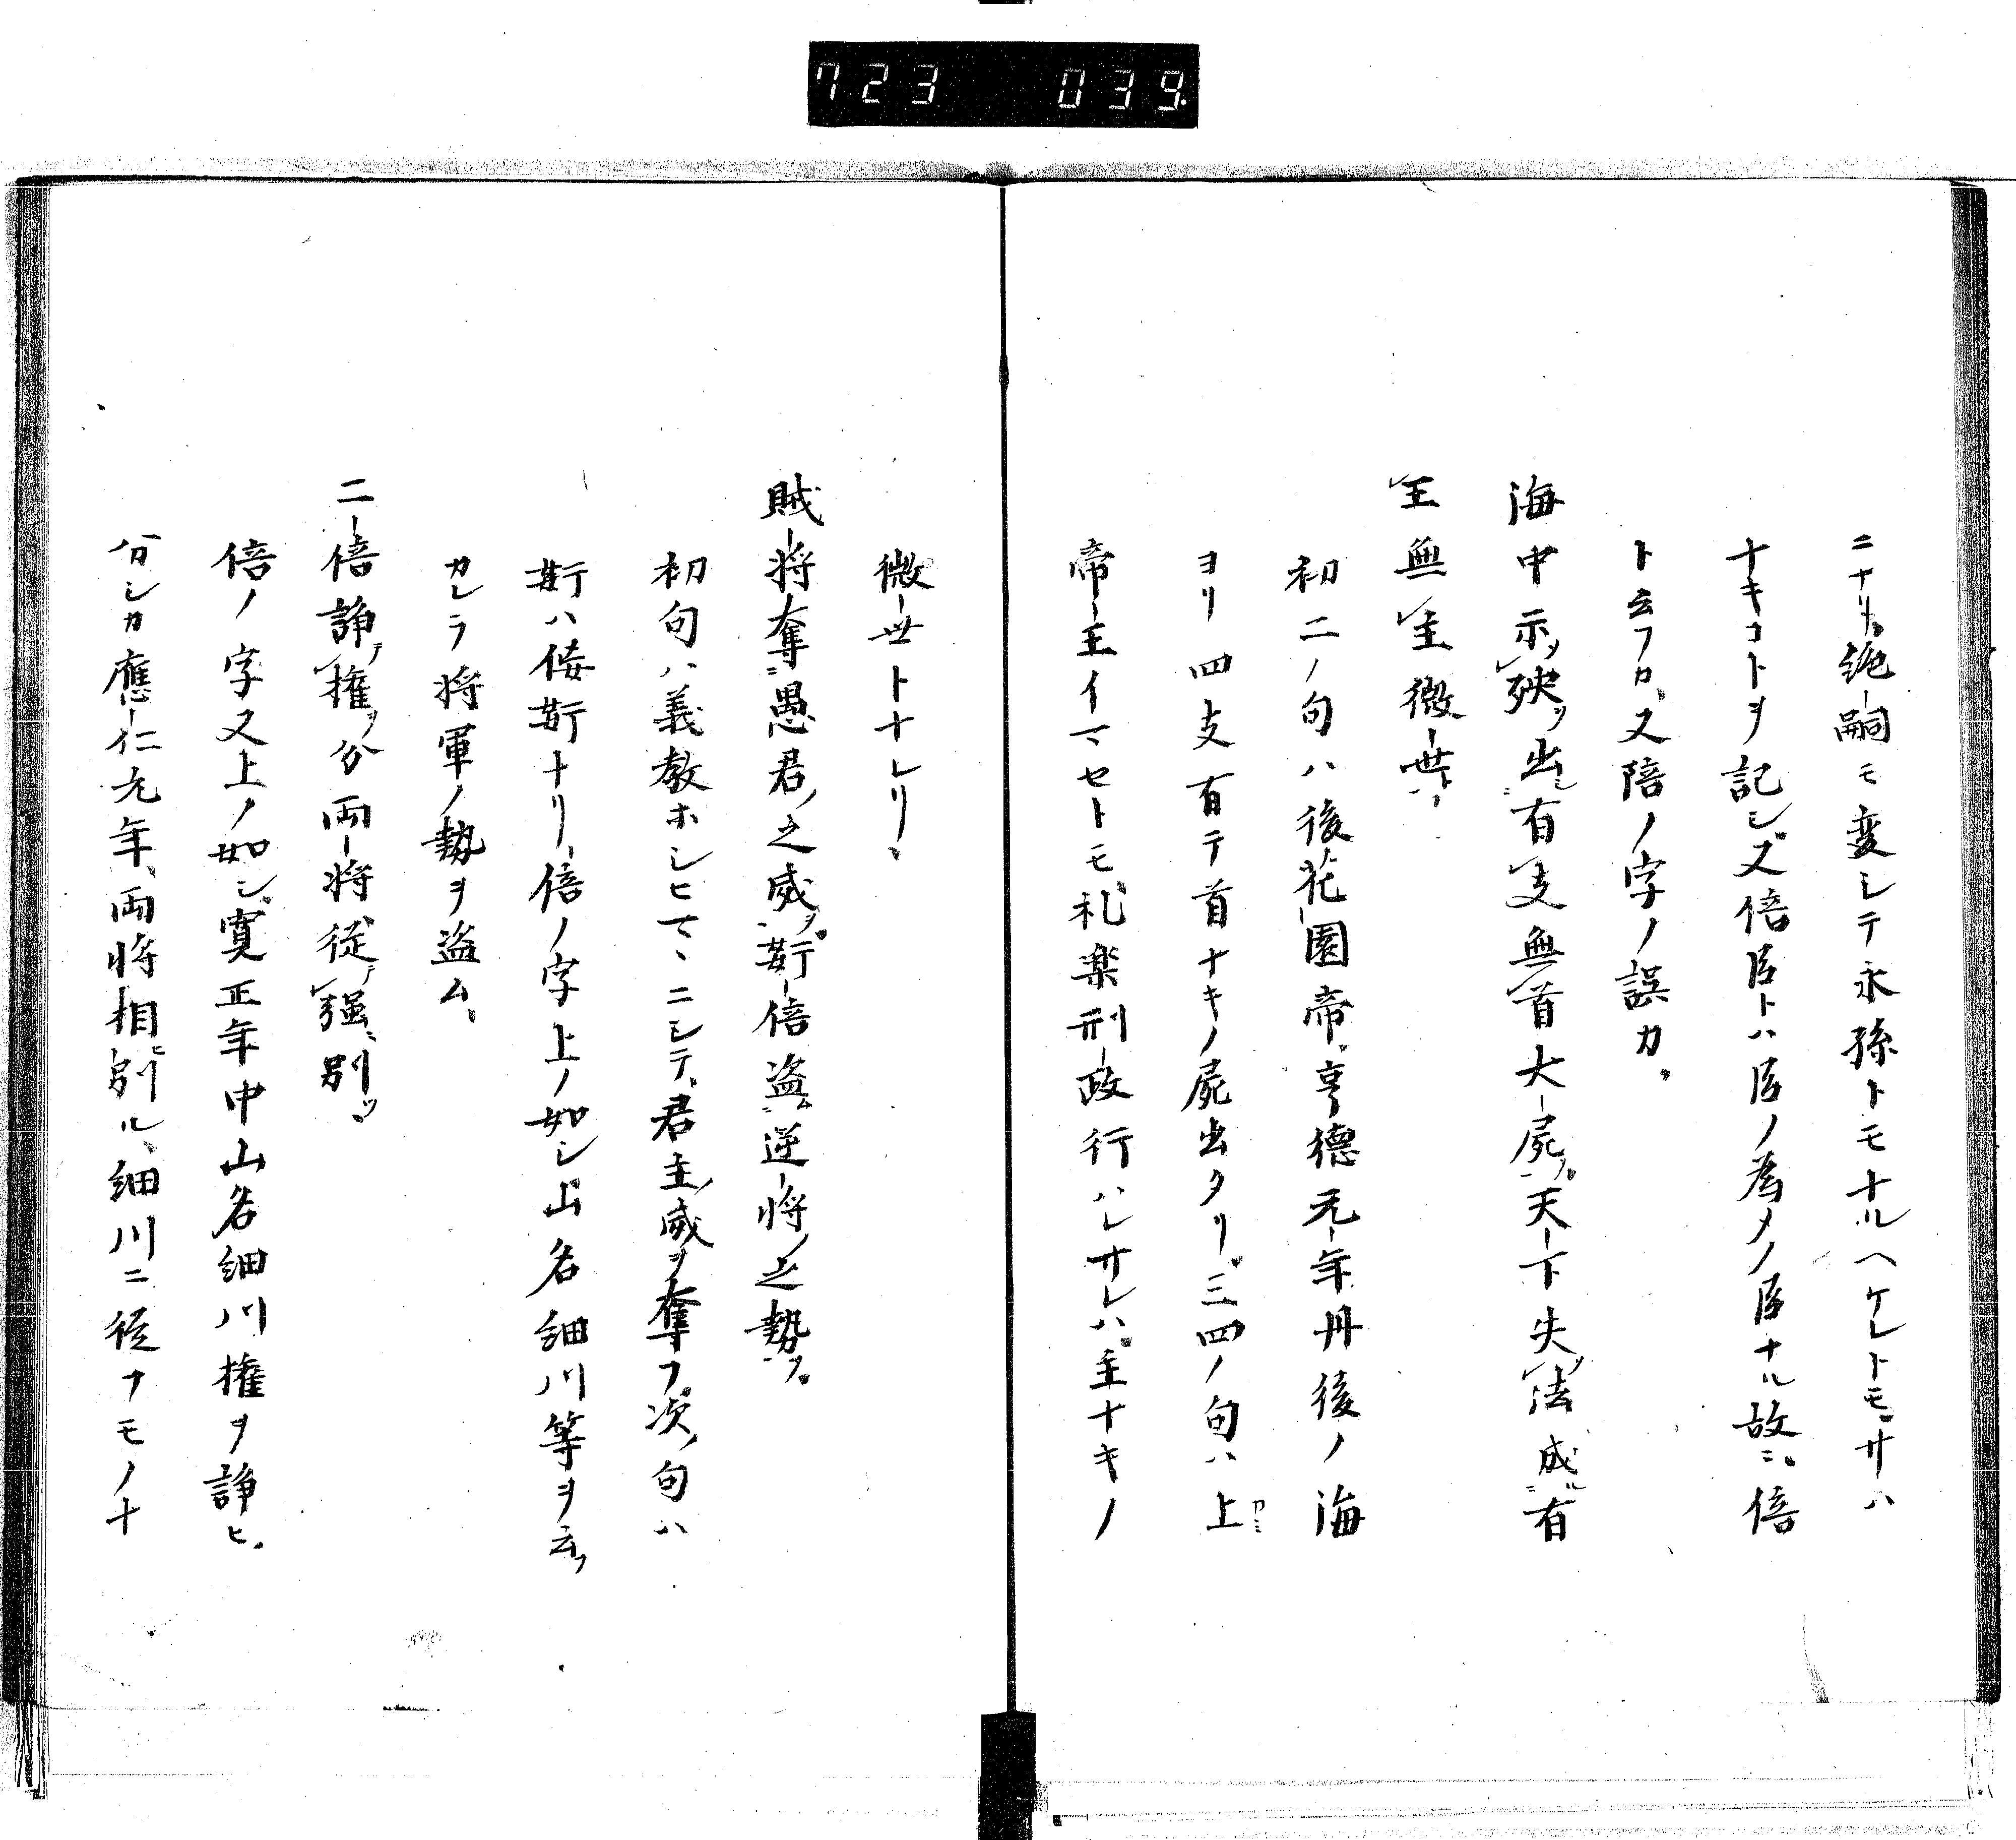 723 039
ニナリ絶嗣モ変シテ永孫トモナルヘケレトモサハ
ナキコトヲ記シ又倍臣トハ臣ノ為メノ臣ナル故ニ倍
ト云フカ又陪ノ字ノ誤カ
海中示ソ殃ヲ出ニ有支無首大屍ヲ天下失ソ法成ル有
王無主微世ト
初二ノ句ハ後花園帝享徳元年丹後ノ海
ヨリ四支有テ首ナキノ屍出タリ三四ノ句ハ上カミ
帝王イマセトモ礼楽刑政行ハレサレハ主ナキノ
微世トナレリ
賊将奪ニ愚君ノ之威ヲ倍盗逆将ノ之勢ヲ
初句ハ義教ホシヒマヽニシテ君主ノ威ヲ奪フ次ノ句ハ
ハ倿ナリ倍ノ字上ノ如シ山名細川等ヲ云フ
カレラ将軍ノ勢ヲ盗ム
二倍諍テ権ヲ分両将従テ強ニ別ツ
倍ノ字又上ノ如シ寛正年中山名細川権ヲ諍ヒ
分シカ應仁元年両将相ヒ別ル細川ニ従フモノ十